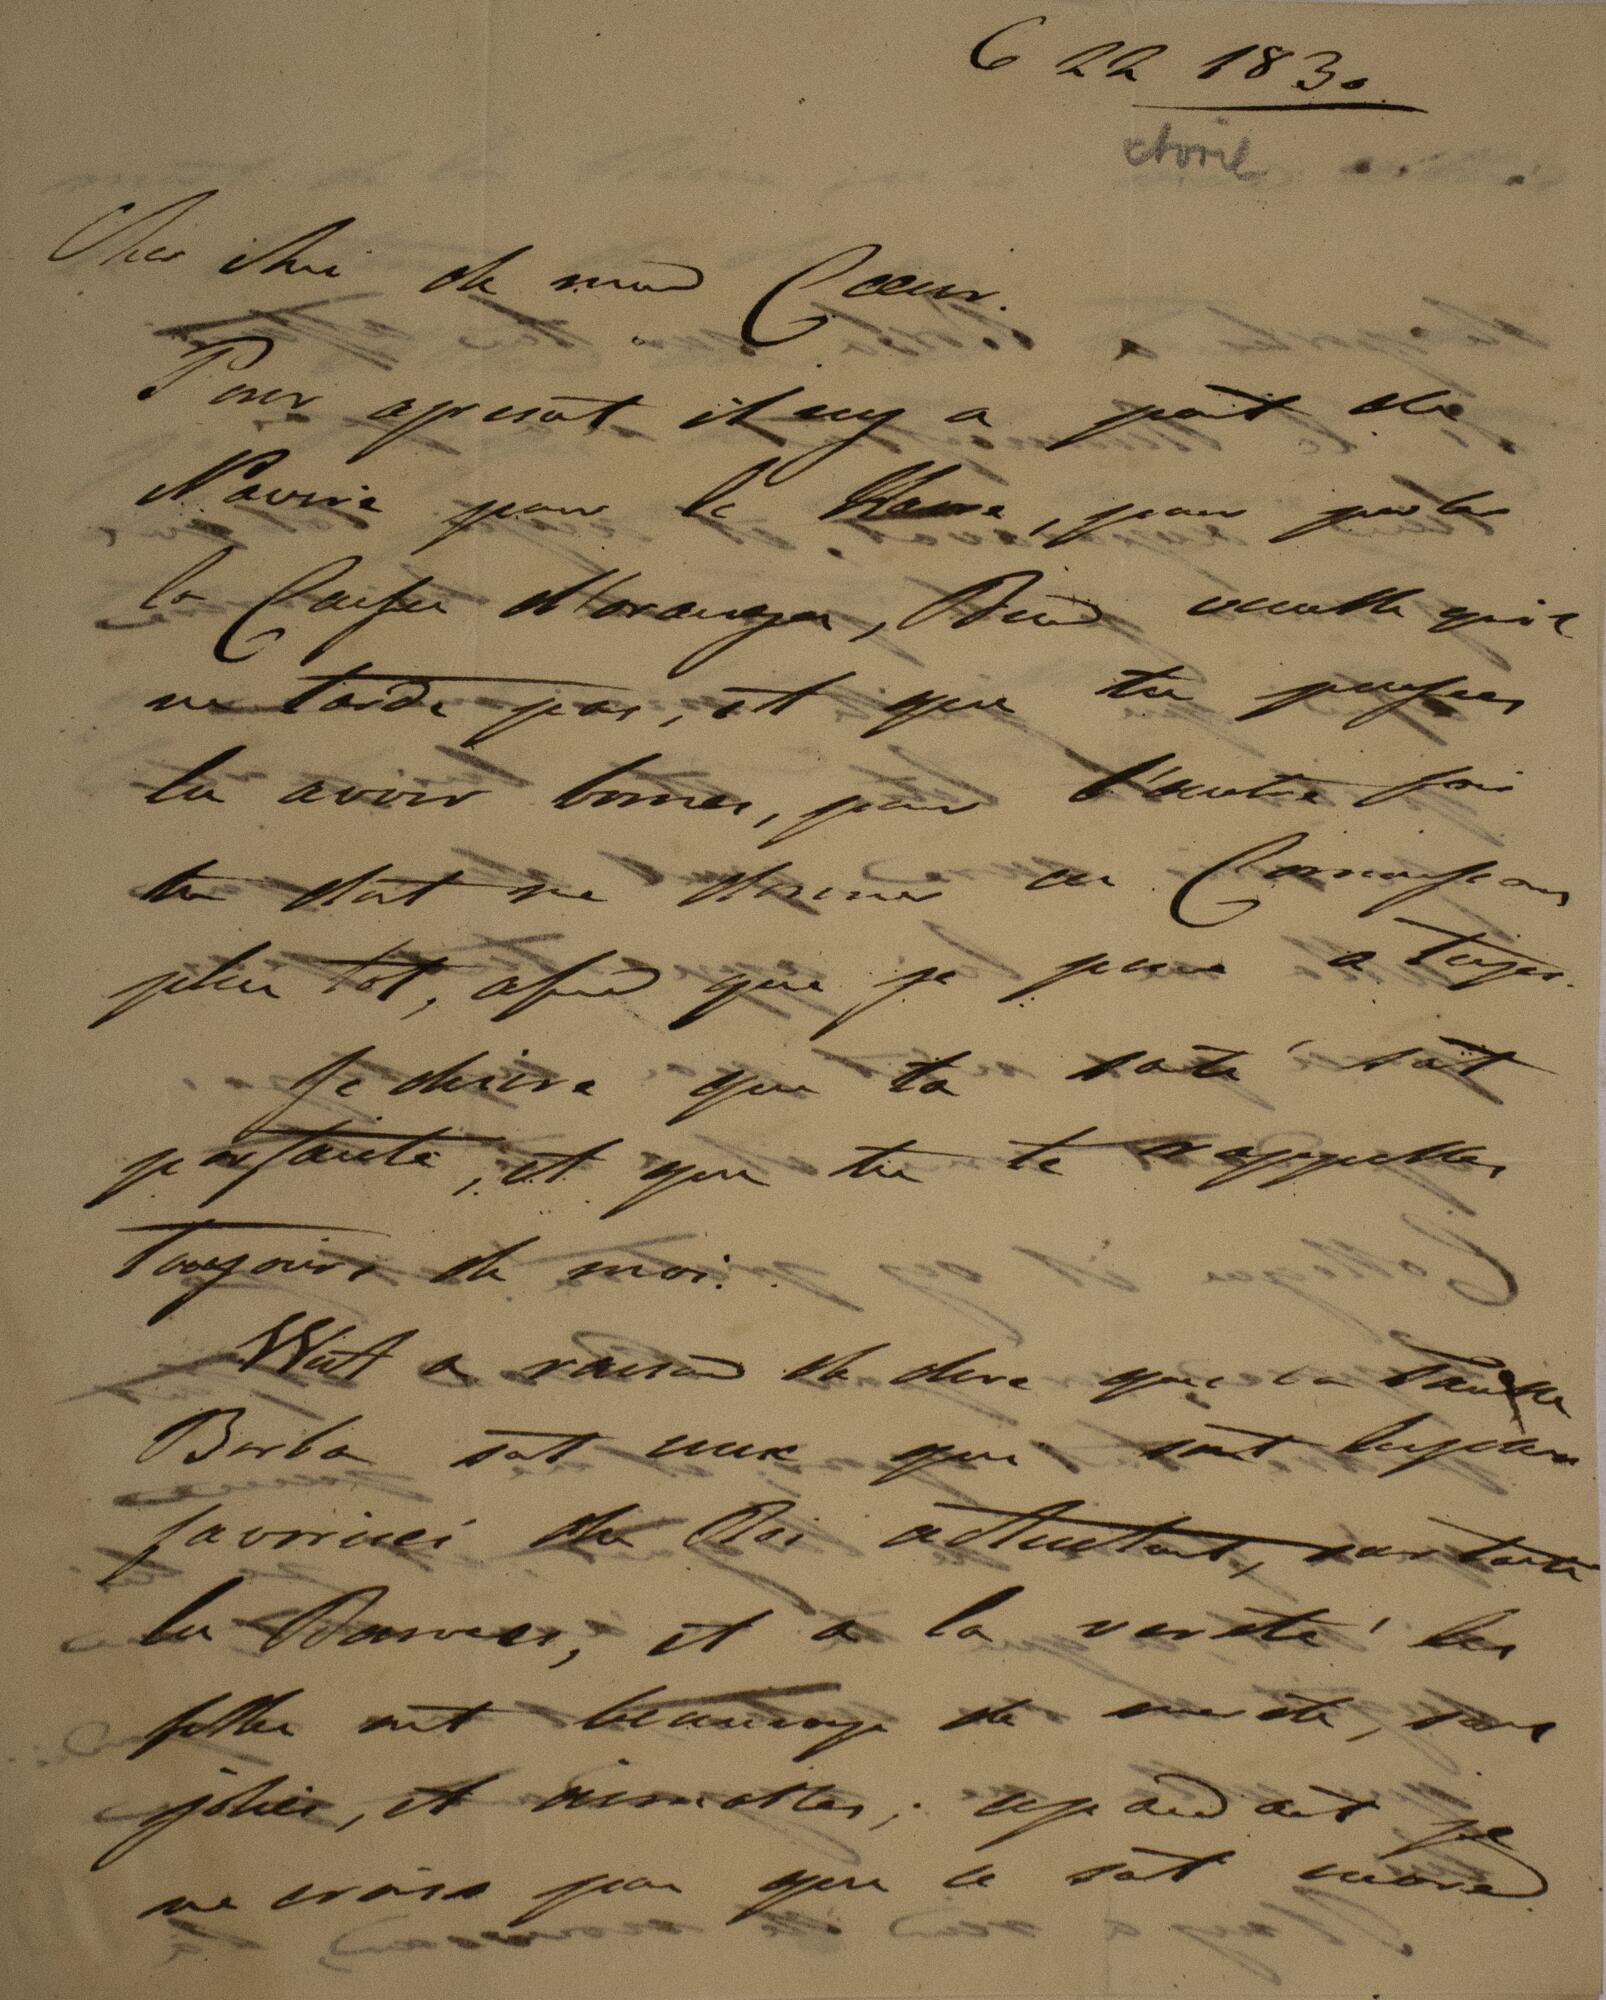 C 22 1830
Avril
Cher Ami de mon Coeur.
Pour apresat il ny a pat de
Navire pour le Havre, pour porter
la Caisse d'oranges, Dieu veuille qu'il
ne tarde pas, et que tu puisses
les avoir bonnes, pour l'autre fois
tu doit me donner ce Comissions
plus tôt, afin que je puisse a tems.
Je desire que ta saté soit
parfaite, et que tu te rappelles
toujours de moi.
Wiit a raison de dire que la Famille
Borba sont ceux qui sont les plus
favorisés du Roi actuelment, sur toute
les Dames, et a la verité les
filles ont beaucoup de merite, sons
jolies, et aimables; cepandant je
ne crois pas que ce soit encore